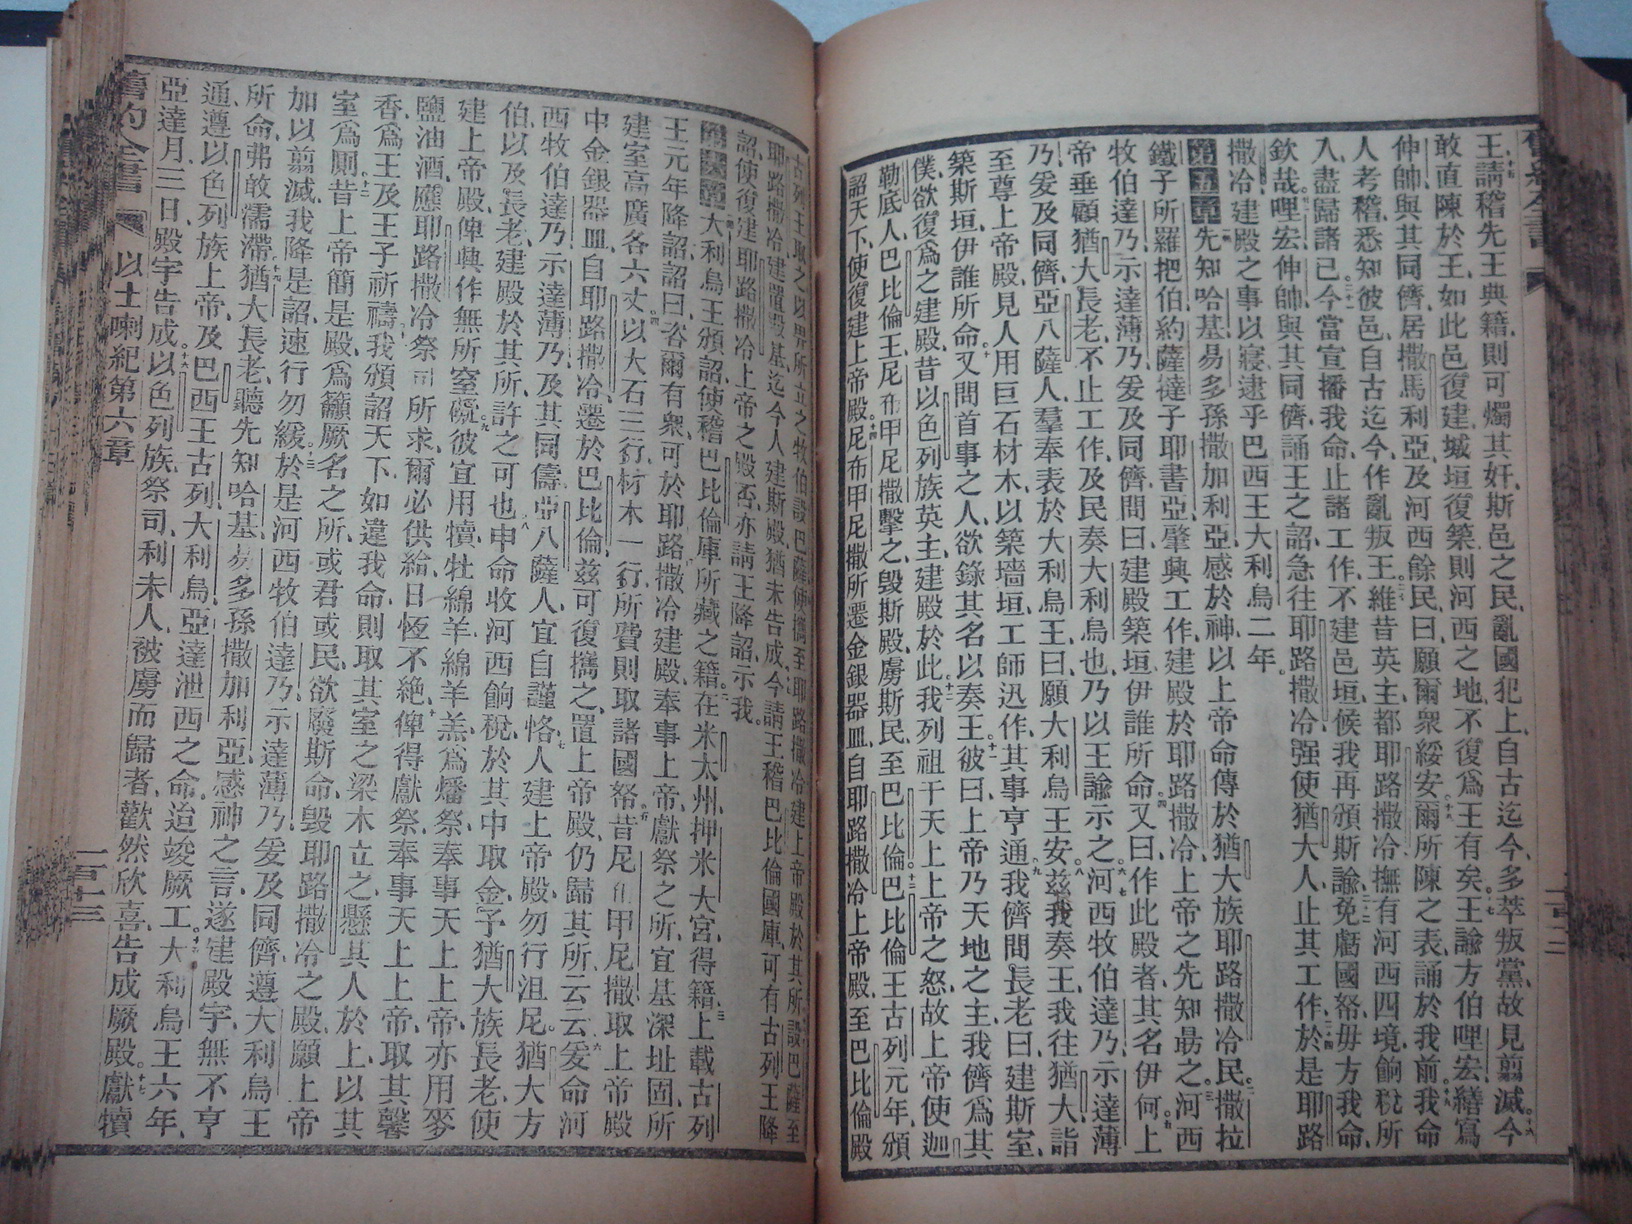 王請稽先王典籍則可燭其奸斯邑之民亂國犯上自古迄今多萃叛黨故見翦滅今
敢直陳於王如此邑復建城垣復築則河西之地不復爲王有矣王諭方伯哩宏繕寫
伸帥與其同儕居撒馬利亞及河西餘民曰願爾衆綏安爾所陳之表誦於我前我命
人考稽悉知彼邑自古迄今作亂叛王維昔英主都耶路撒冷撫有河西四境餉稅所
入盡歸諸己今當宣播我命止諸工作不建邑垣候我再頒斯諭免虧國帑毋方我命
欽哉哩宏伸帥與其同儕誦王之詔急往耶路撒冷强使猶大人止其工作於是耶路
撒冷建殿之事以寢逮乎巴西王大利烏二年
第五章先知哈基易多孫撒加利亞感於神以上帝命傳於猶大族耶路撒冷民撒拉
鐵子所羅把伯約薩撻子耶書亞肇興工作建殿於耶路撒冷上帝之先知勗之河西
牧伯達乃示達薄乃爰及同儕問曰建殿築垣伊誰所命又曰作此殿者其名伊何上
帝垂顧猶大長老不止工作及民奏大利烏也乃以王諭示之河西牧伯達乃示達薄
乃爰及同儕亞八薩人羣奉表於大利烏王曰願大利烏王安茲我奏王我往猶大詣
至尊上帝殿見人用巨石材木以築墻垣工師迅作其事亨通我儕問長老曰建斯室
築斯垣伊誰所命又問首事之人欲錄其名以奏王彼曰上帝乃天地之主我儕爲其
僕欲復爲之建殿昔以色列族英主建殿於此我列祖干天上上帝之怒故上帝使迦
勒底人巴比倫王尼布甲尼撒擊之毀斯殿虜斯民至巴比倫巴比倫王古列元年頒
詔天下使復建上帝殿尼布甲尼撒所遷金銀器皿自耶路撒冷上帝殿至巴比倫殿
古列王取之以畀所立之牧伯設巴薩使攜至耶路撒冷建上帝殿於其所設巴薩至
耶路撒冷建置殿基迄今人建斯殿猶未告成今請王稽巴比倫國庫可有古列王降
詔使復建耶路撒冷上帝之殿否亦請王降詔示我
第六章大利烏王頒詔使稽巴比倫庫所藏之籍在米太州押米大宮得籍上載古列
王元年降詔詔曰咨爾有衆可於耶路撒冷建殿奉事上帝獻祭之所宜基深址固所
建室高廣各六丈以大石三行材木一行所費則取諸國帑昔尼布甲尼撒取上帝殿
中金銀器皿自耶路撒冷遷於巴比倫茲可復攜之置上帝殿仍歸其所云云爰命河
西牧伯達乃示達薄乃及其同儔亞八薩人宜自謹恪人建上帝殿勿行沮尼猶大方
伯以及長老建殿於其所許之可也申命收河西餉稅於其中取金予猶大族長老使
建上帝殿俾興作無所窒礙彼宜用犢牡綿羊綿羊羔爲燔祭奉事天上上帝亦用麥
鹽油酒應耶路撒冷祭司所求爾必供給日恆不絕俾得獻祭奉事天上上帝取其馨
香爲王及王子祈禱我頒詔天下如違我命則取其室之梁木立之懸其人於上以其
室爲厠昔上帝簡是殿爲籲厥名之所或君或民欲廢斯命毀耶路撒冷之殿願上帝
加以翦滅我降是詔速行勿緩於是河西牧伯達乃示達薄乃爰及同儕遵大利烏王
所命弗敢濡滯猶大長老聽先知哈基易多孫撒加利亞感神之言遂建殿宇無不亨
通遵以色列族上帝及巴西王古列大利烏亞達泄西之命迨竣厥工大利烏王六年
亞達月三日殿宇告成以色列族祭司利未人被虜而歸者歡然欣喜告成厥殿獻犢
舊約全書 以士喇紀第六章 一百十三